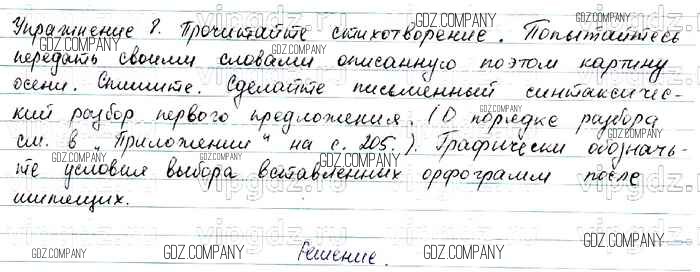 Упражнение 8. Прочитайте стихотворение. Попытайтесь
передать своими словами описанную поэтом картину
осени. Спишите. Сделайте письменный синтаксичес-
кий разбор первого предложения. (О порядке разбора
см. в „Приложении" на с. 205.) Графически обозначь-
те условия выбора вставленных орфограмм после
шипящих.
Решение.
GDZ.COMPANY
vipgdz.ru